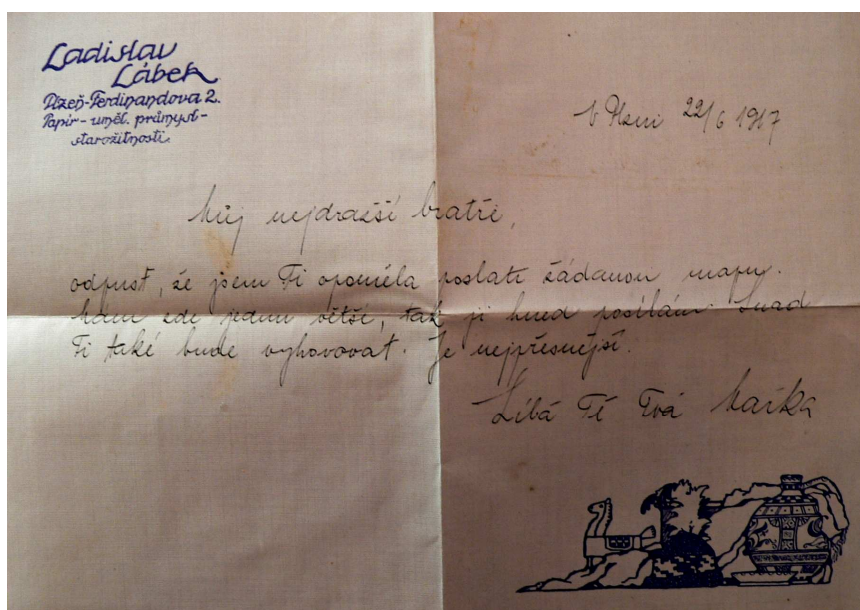 Ladislav
Lábek
Plzeň-Ferdinandova 2.
Papír - uměl. průmysl -
starožitnosti.
V Plzni 22/6 1917
Můj nejdražší bratře,
odpusť, že jsem Ti opoměla poslati žádanou mapu.
Mám zde jednu větší, tak ji hned posílám. Snad
Ti také bude vyhovovat. Je nejpřesnější.
Líbá Tě Tvá Mařka